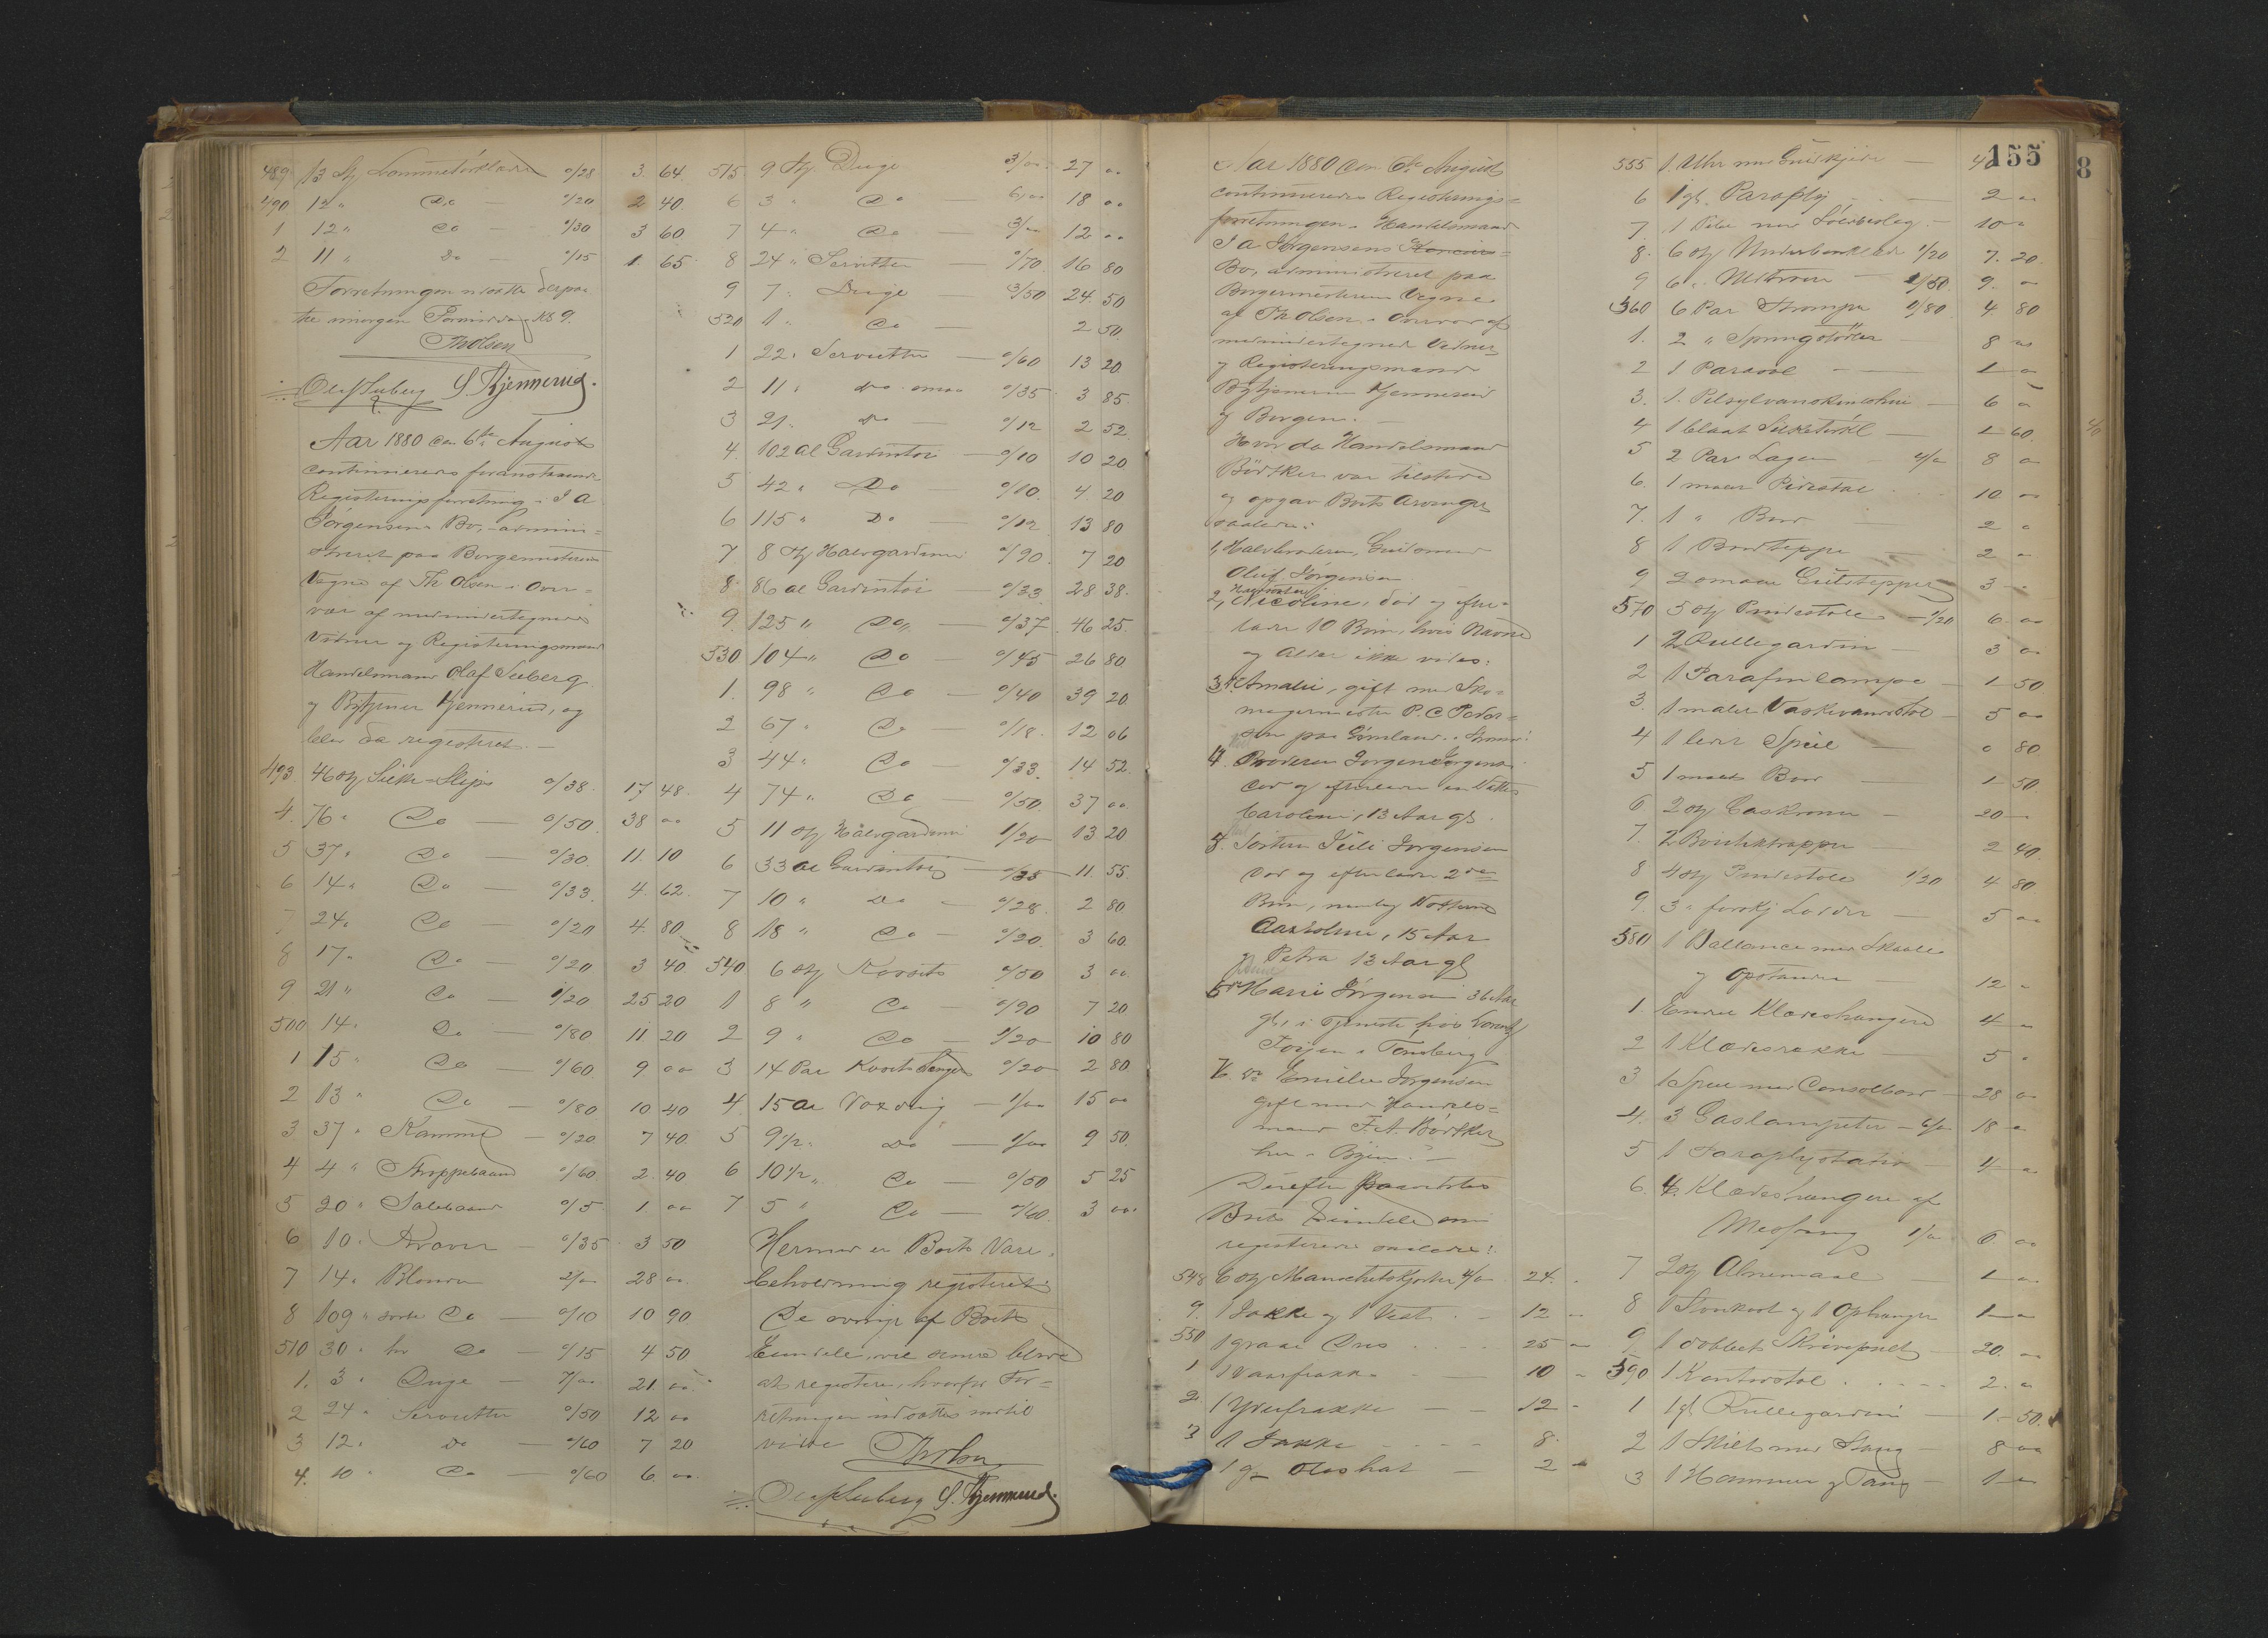 489 13 St Lommetørklæder 0/28 3. 64.
490 12 " Do — 0/20 2 40
1 12 " Do — 0/30 3 60
2 11 " Do — 0/15 1. 65.
Forretningen udsatte derpaa
til imorgen Formiddag Kl 9.
Th Olsen
Olaf Seeberg S. Kjennerud.
Aar 1880 den 6te August
continueredes foranstaaende
Registeringsforretning i J A
Jørgensens Bo, admini=
streret paa Borgermesterens
Vegne af Th Olsen i Over=
vær af medundertegnede
Vidner og Registeringsmænd
Handelsmand Olaf Seeberg
og Bytjener Kjennerud, og
blev da registreret. —
493 46 St Silke-Slips 0/38. 17 48.
4. 76 " Do — 0/50. 38 00
5 37 " Do — 0/30. 11. 10
6 14 " Do — 0/33. 4. 62.
7 24 " Do — 0/20 4. 80
8 17 " Do — 0/20 3 40
9 21 " Do — 1/20 25 20
500 14 " Do — 0/80 11 20
1 15 " Do — 0/60 9 00
2 13 " Do — 0/80 10 40
3 37 " Kamme — 0/20 7 40
4 4 " Stroppebaand 0/60 2. 40
5 20 " 0/5 1. 00
6 10 " Kraver — 0/35 3 50
7 14 " Blonder 2/00 28 00
8 109 " sorte Do — 0/10 10 90
510 30 " hv Do — 0/15 4 50
1. 3 " Duge — 7/00 21 00
2 24 " Servietter 0/50 12 00
3 12 " Do — 0/60 7 20
4. 10 " Do — 0/60 6. 00
515 9 St Duge 3/00 27 00
6 3 " Do — 6/00 18 00
7 4 " Do — 3/00 12 00
8 24 " Servietter — 0/70. 16 80
9 7 " Duge — 3/50 24. 50
520 1 " Do — 2 50
1 22 " Servietter — 0/60 13 20
2 11 " Do smaa 0/35 3 85.
3 21 " Do — 0/12 2 52
4. 102 al Gardintøi — 0/10 10 20
5 42 " Do — 0/10. 4. 20
6 115 " Do — 0/12 13 80
7 8 St Halvgardiner 0/90. 7 20
8 86 al Gardintøi — 0/33 28 38.
9. 125 " Do — 0/37 46 25.
530 104 " Do — 0/45 26 80
1. 98 " Do — 0/40 39 20
2 67 " Do — 0/18. 12 06
3 44 " Do — 0/33. 14 52
4 74 " Do — 0/50. 37 00
5 11 St Halvgardiner 1/20 13 20
6 33 al Gardintøi — 0/35 11. 55.
7 10 " Do — 0/28. 2 80
8 18 " Do — 0/20. 3 60.
540 6 St Korsets 0/50 3 00
1 8 " Do — 0/90 7 20
2 9 " Do — 1/20 10 80
3 14 Par Korsetstænger 0/20 2 80
4. 15 al Voxdug — 1/00 15 00
5 9 1/2 " Do — 1/00 9 50.
6 10 1/2 " Do — 0/50 5 25
7 5 " Do — 0/60. 3 00.
Hermed er Boets Vare=
beholdning registeret.
De øvrige af Boets
Eiendele, vil senere blive
at registere, hvorfor For=
retningen udsattes indtil
videre Th Olsen
Olaf Seeberg S. Kjennerud.
155
8
Aar 1880 den 6te August
continueredes Registerings=
forretningen i Handelsmand
J A Jørgensens
Bo, administreret paa
Borgermesterens Vegne
af Th Olsen i Overvær af
medundertegnede Vidner
og Registeringsmænd
Bytjenerne Kjennerud
og Borgen. —
Hvor da Handelsmand
Bødtker var tilstede
og opgav Boets Arvinger
saaledes:
1, Halvbroderen, Guldsmed
Oluf Jørgensen
2, Nicoline, død og efter=
lader 10 Børn, hvis Navne
og Alder ikke vides.
3. Amalie, gift med Sko=
magermester P. C Peder=
sen paa
4. Broderen Jørgen Jørgensen
død og efterlader en Datter
Caroline, 13 Aar gl.
5. Søsteren Jørgensen
død og efterlader 2de
Børn, nemlig Døttrene
15 Aar
og Petra 13 Aar gl
Marie Jørgensen 36 Aar
gl, i Tjeneste hos
Foyen i Tønsberg
Emilie Jørgensen
gift med Handels=
mand F. A. Bødtker
her i Byen. —
Derefter
Boets Eiendele som
registeredes saaledes:
548 6 St Manschetskjorter 4/00 24. -
9. 1 Jakke og 1 Vest - 12 -
550 1 graae Dres . . . . 25 -
1 1 Vaarfrakke - — 10 -
2 1 Yderfrakke — — 12 -
3 1 Jakke - - - - 8 -
1 gl Floshat — 2 -
555 1 Uhr med Guldkjede — 4
6 1 gl. Paraply - 2 00
7. 1 Pibe med Sølvbeslag. 10 00
8. 6 St Underbenklæder 1/20 7. 20
9 6 " 1/50. 9. 00
560 6 Par Strømper 0/80 4 80
1. 2 " 8 00
2 1 Parasol — — 1 00
3. 1. — 6 00
4 1 blaat Silketørkl — 1 60.
5 2 Par Lagen - 4/00 8 00
6. 1 malet Pidestal . 10 00
7. 1 " Bord — 2 00
8 1 Bordteppe — 2 00
9 2 smaae Gulvtepper 3 -
570 5 St Pindestole — 1/20 6. 00
1 2 Rullegardin — 3 00
2 1 Parafinlampe — 1 50
3. 1 malet Vaskevandstol — 5 00
4 1 lidet Speil — 0 80
5 1 malet Bord — 1 50
6 2 St Gaskroner — 20 —
7. 2 — 2 40.
8 4 St Pindestole 1/20 4 80
9. 3 " forskj — 5 00
580 1 Ballance med Skaale
og Opstander — 12 -
1. Endel Klædeshængere 4 00
2 1 Klædesrække — 5 -
3 1 Speil med Consolbord — 28 00
4. 3 Gaslampetter — 6/00 18 00
5 1 Paraplystativ — 4 00
6 4. Klædeshængere af
Messing 1/00 6 00
7 2 St Alnemaal — 1 00
8 1 og 1 Ophænger 1 00
9. 1 dobbelt Skrivepult — 20. 00
590 1 Kontorstol . . . . 2. 00
1 1 gl Rullegardin — 1. 50.
2 1 Skilt med Stang — 8 00
3 1 Hammer og Tang — 1 00